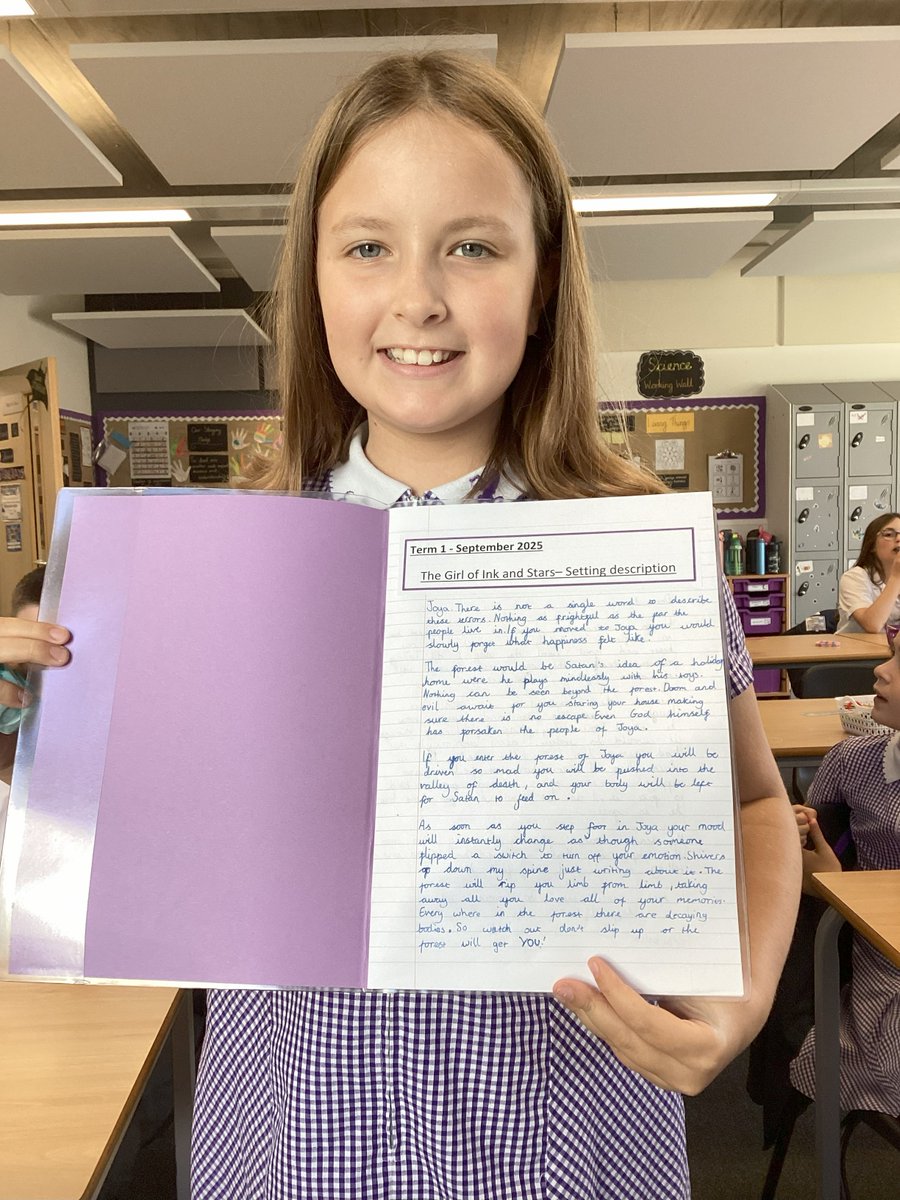 Science
Working Wall
Living Things
Term 1 - September 2025
The Girl of Ink and Stars– Setting description
Joya. There is not a single word to describe
these terrors. Nothing as frightful as the fear the
people live in. If you moved to Joya you would
slowly forget what happiness felt like.
The forest would be Satan's idea of a holiday
home were he plays mindlessly with his toys.
Nothing can be seen beyond the forest. Doom and
evil await for you staring your house making
sure there is no escape. Even God himself
has forsaken the people of Joya.
If you enter the forest of Joya you will be
driven so mad you will be pushed into the
valley of death, and your body will be left
for Satan to feed on.
As soon as you step foor in Joya your mood
will instantly change as though someone
flipped a switch to turn off your emotion. Shivers
down my spine just writing about it. The
forest will rip you limb from limb, taking
away all you love all of your memories.
Every where in the forest there are decaying
bodies. So watch out don't slip up or the
forest will get YOU!